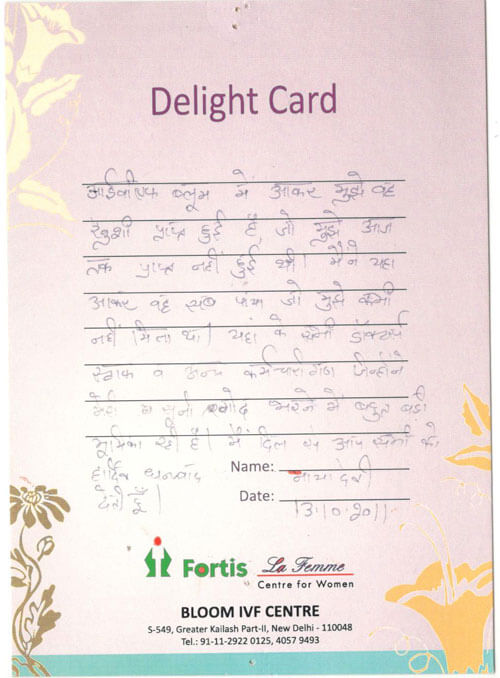 Delight Card
आईवीएफ ब्लूम में आकर मुझे वह
खुशी प्राप्त हुई है, जो मुझे आज
तक प्राप्त नहीं हुई थी। मैंने यहा
आकर वह सब पाया जो मुझे कभी
नहीं मिला था। यहां के सभी डॉक्टर्स
स्टाफ व अन्य कर्मचारीगण जिन्होंने
मेरी सूनी गोद भरने में बहुत बडी
भूमिका रही है। मैं दिल से आप सभी को
हार्दिक धन्यवाद
देती हूँ।
Name: माया देवी
Date: 13.10.2011
Fortis La Femme
Centre for Women
BLOOM IVF CENTRE
S-549, Greater Kailash Part-II, New Delhi - 110048
Tel.: 91-11-2922 0125, 4057 9493